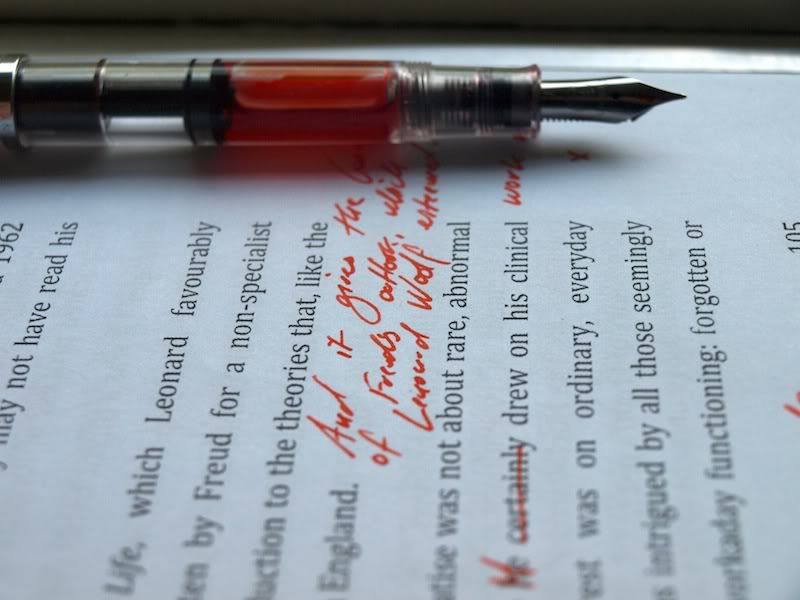 1962
may not have read his
Life, which Leonard favourably
by Freud for a non-specialist
to the theories that, like the
England.
And it gives the
of Freud's author, which
Leonard Woolf esteemed
was not about rare, abnormal
He certainly drew on his clinical work,
was on ordinary, everyday
intrigued by all those seemingly
functioning: forgotten or
105